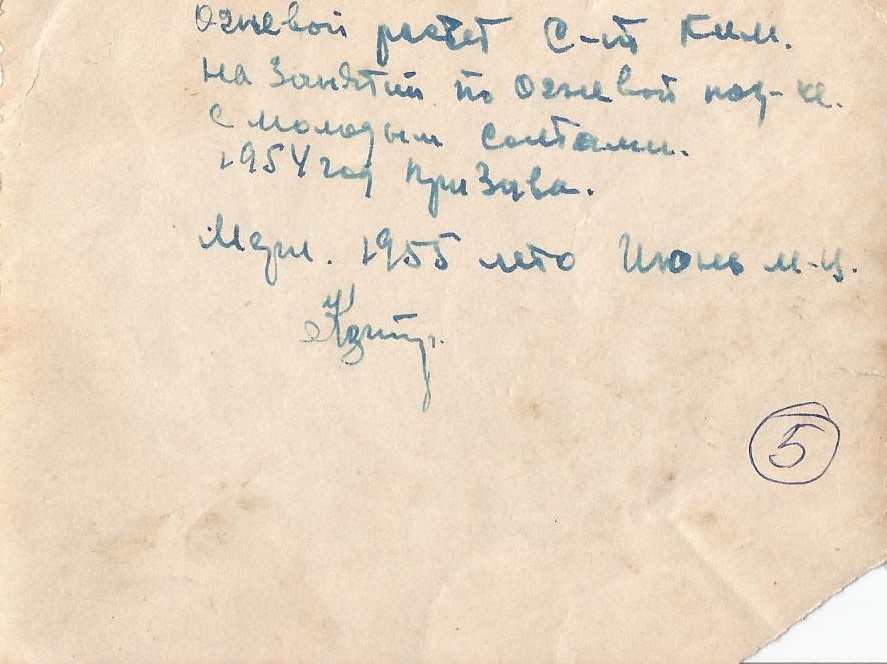 Огневой росчет С-т Ким.
на Занятии по Огневой под-ке.
с молодым солтами.
1954 год призыва.
1955 лето Июнь м-ц.
5